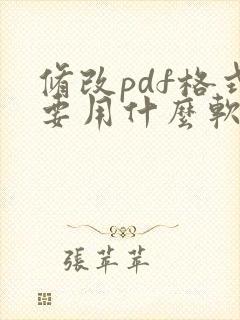 脩改pdf格式
要用什麼軟
張苹苹